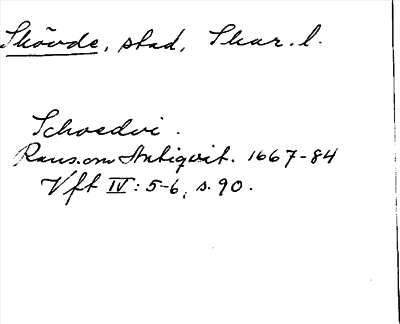 Skövde, stad, Skar. l.
Schoedvi.
Rans. om Antiqvit. 1667-84
Vft IV: 5-6, s. 90.